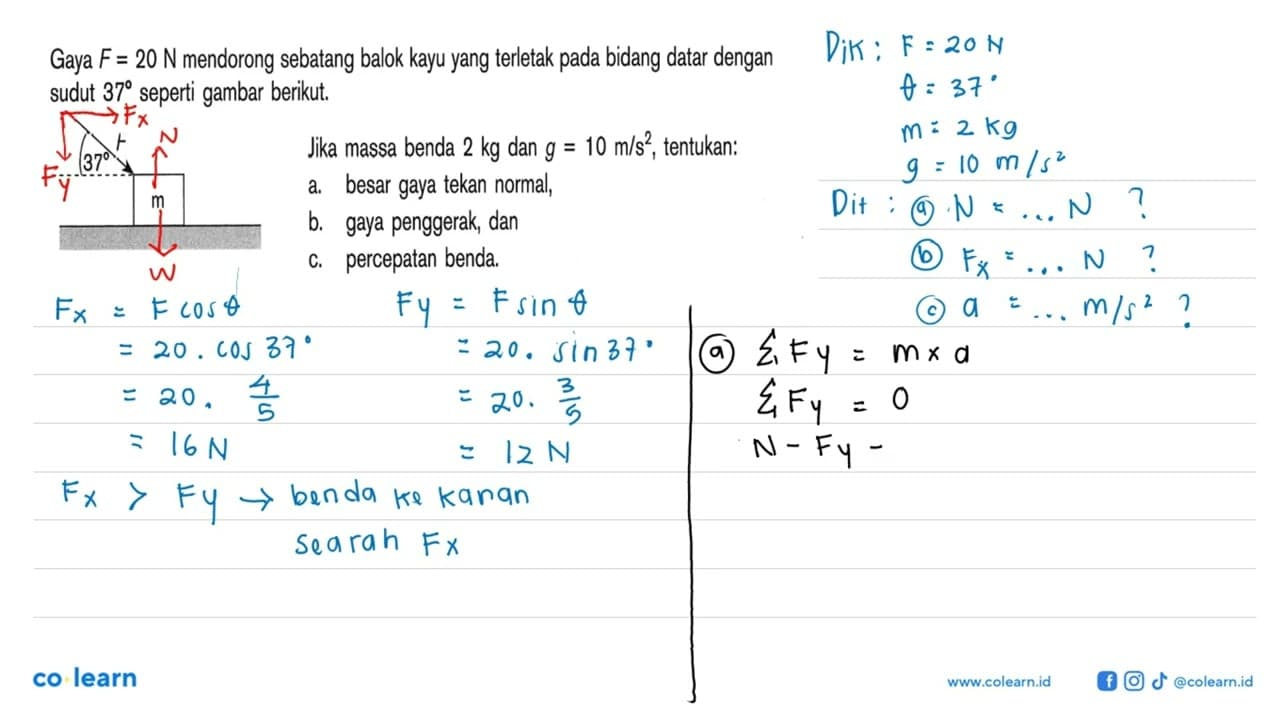 Gaya F = 20 N mendorong sebatang balok kayu yang terletak pada bidang datar dengan
sudut 37° seperti gambar berikut.
Fx
F
N
37°
Fy
m
W
Jika massa benda 2 kg dan g = 10 m/s², tentukan:
a. besar gaya tekan normal,
b. gaya penggerak, dan
c. percepatan benda.
Dik : F = 20 N
θ = 37°
m = 2 kg
g = 10 m/s²
Dit : ⓐ N = ... N ?
ⓑ Fx = ... N ?
ⓒ a = ... m/s² ?
Fx = F cos θ
= 20 . cos 37°
= 20 . 4/5
= 16 N
Fy = F sin θ
= 20 . sin 37°
= 20 . 3/5
= 12 N
Fx > Fy → benda ke kanan
searah Fx
ⓐ ΣFy = m × a
ΣFy = 0
N - Fy -
co learn
www.colearn.id
@colearn.id